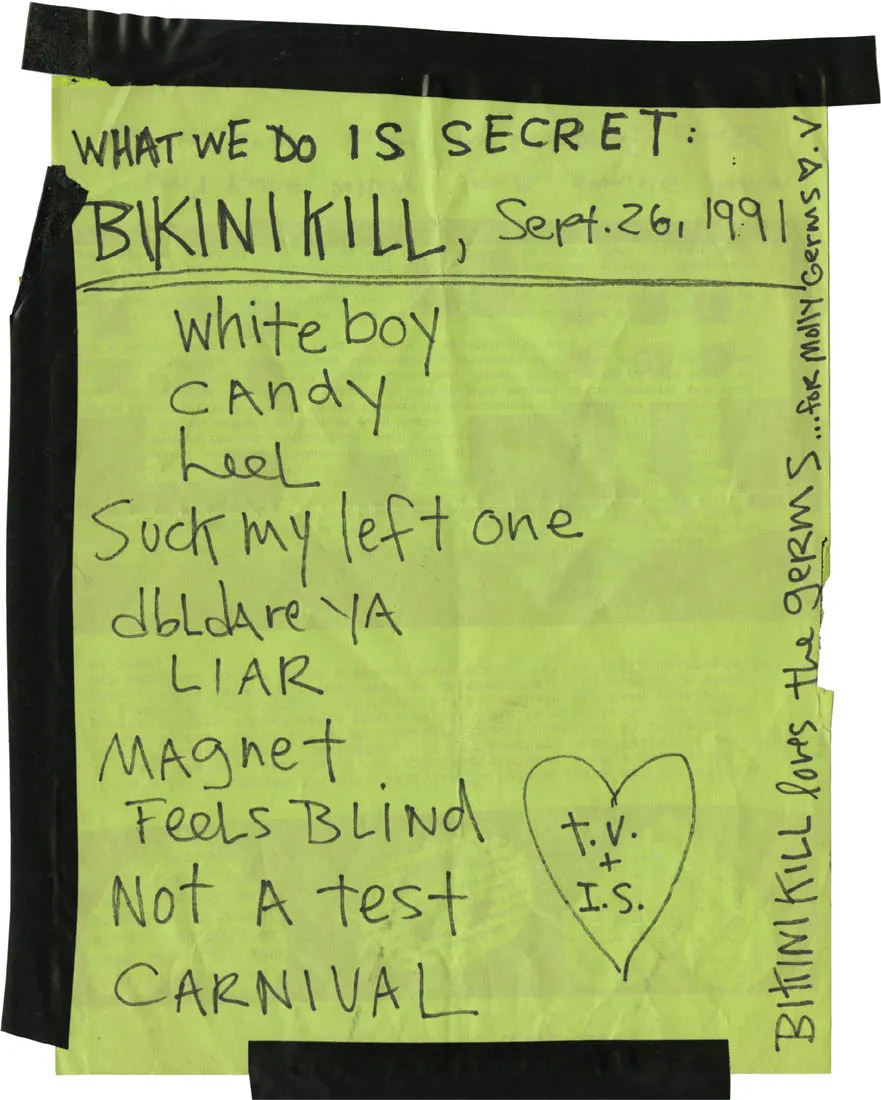 WHAT WE DO IS SECRET:
BIKINI KILL, Sept. 26, 1991
white boy
CANdy
heeL
Suck my left one
dbLdAre YA
LIAR
MAgnet
FeeLs BLiNd
Not A test
CARNIVAL
t.V.
+
I.S.
BIKINI KILL loves the geRMS...foR Molly Germs ♡.V